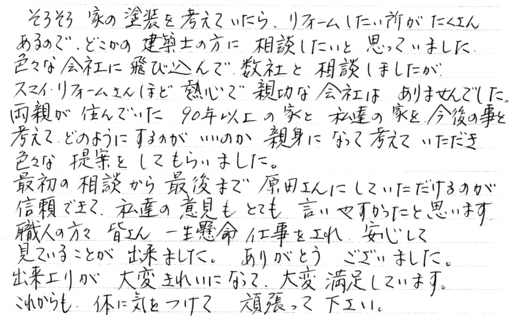 そろそろ 家の塗装を考えていたら、リフォームしたい所がたくさん
あるので、どこかの 建築士の方に 相談したいと 思っていました。
色々な会社に飛び込んで、数社と 相談しましたが
スマイ・リフォームさんほど 熱心で 親切な会社は ありませんでした。
両親が 住んでいた 90年以上の家と 私達の家を、今後の事を
考えて、どのようにするのが いいのか 親身になって考えていただき
色々な 提案をしてもらいました。
最初の相談から 最後まで 原田さんにしていただけるのが
信頼できて、私達の意見も とても 言いやすかったと思います
職人の方々 皆さん 一生懸命 仕事をされ 安心して
見ていることが 出来ました。 ありがとう ございました。
出来上りが 大変きれいになって、大変満足しています。
これからも、体に気をつけて 頑張って下さい。